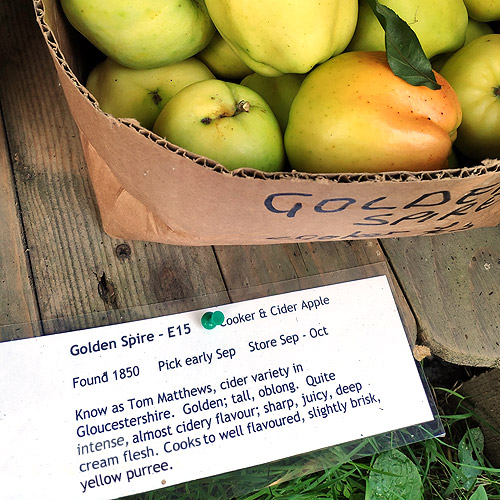 GOLDEN
SPIRE
Golden Spire - E15 Cooker & Cider Apple
Found 1850 Pick early Sep Store Sep - Oct
Know as Tom Matthews, cider variety in
Gloucestershire. Golden; tall, oblong. Quite
intense, almost cidery flavour; sharp, juicy, deep
cream flesh. Cooks to well flavoured, slightly brisk,
yellow purree.